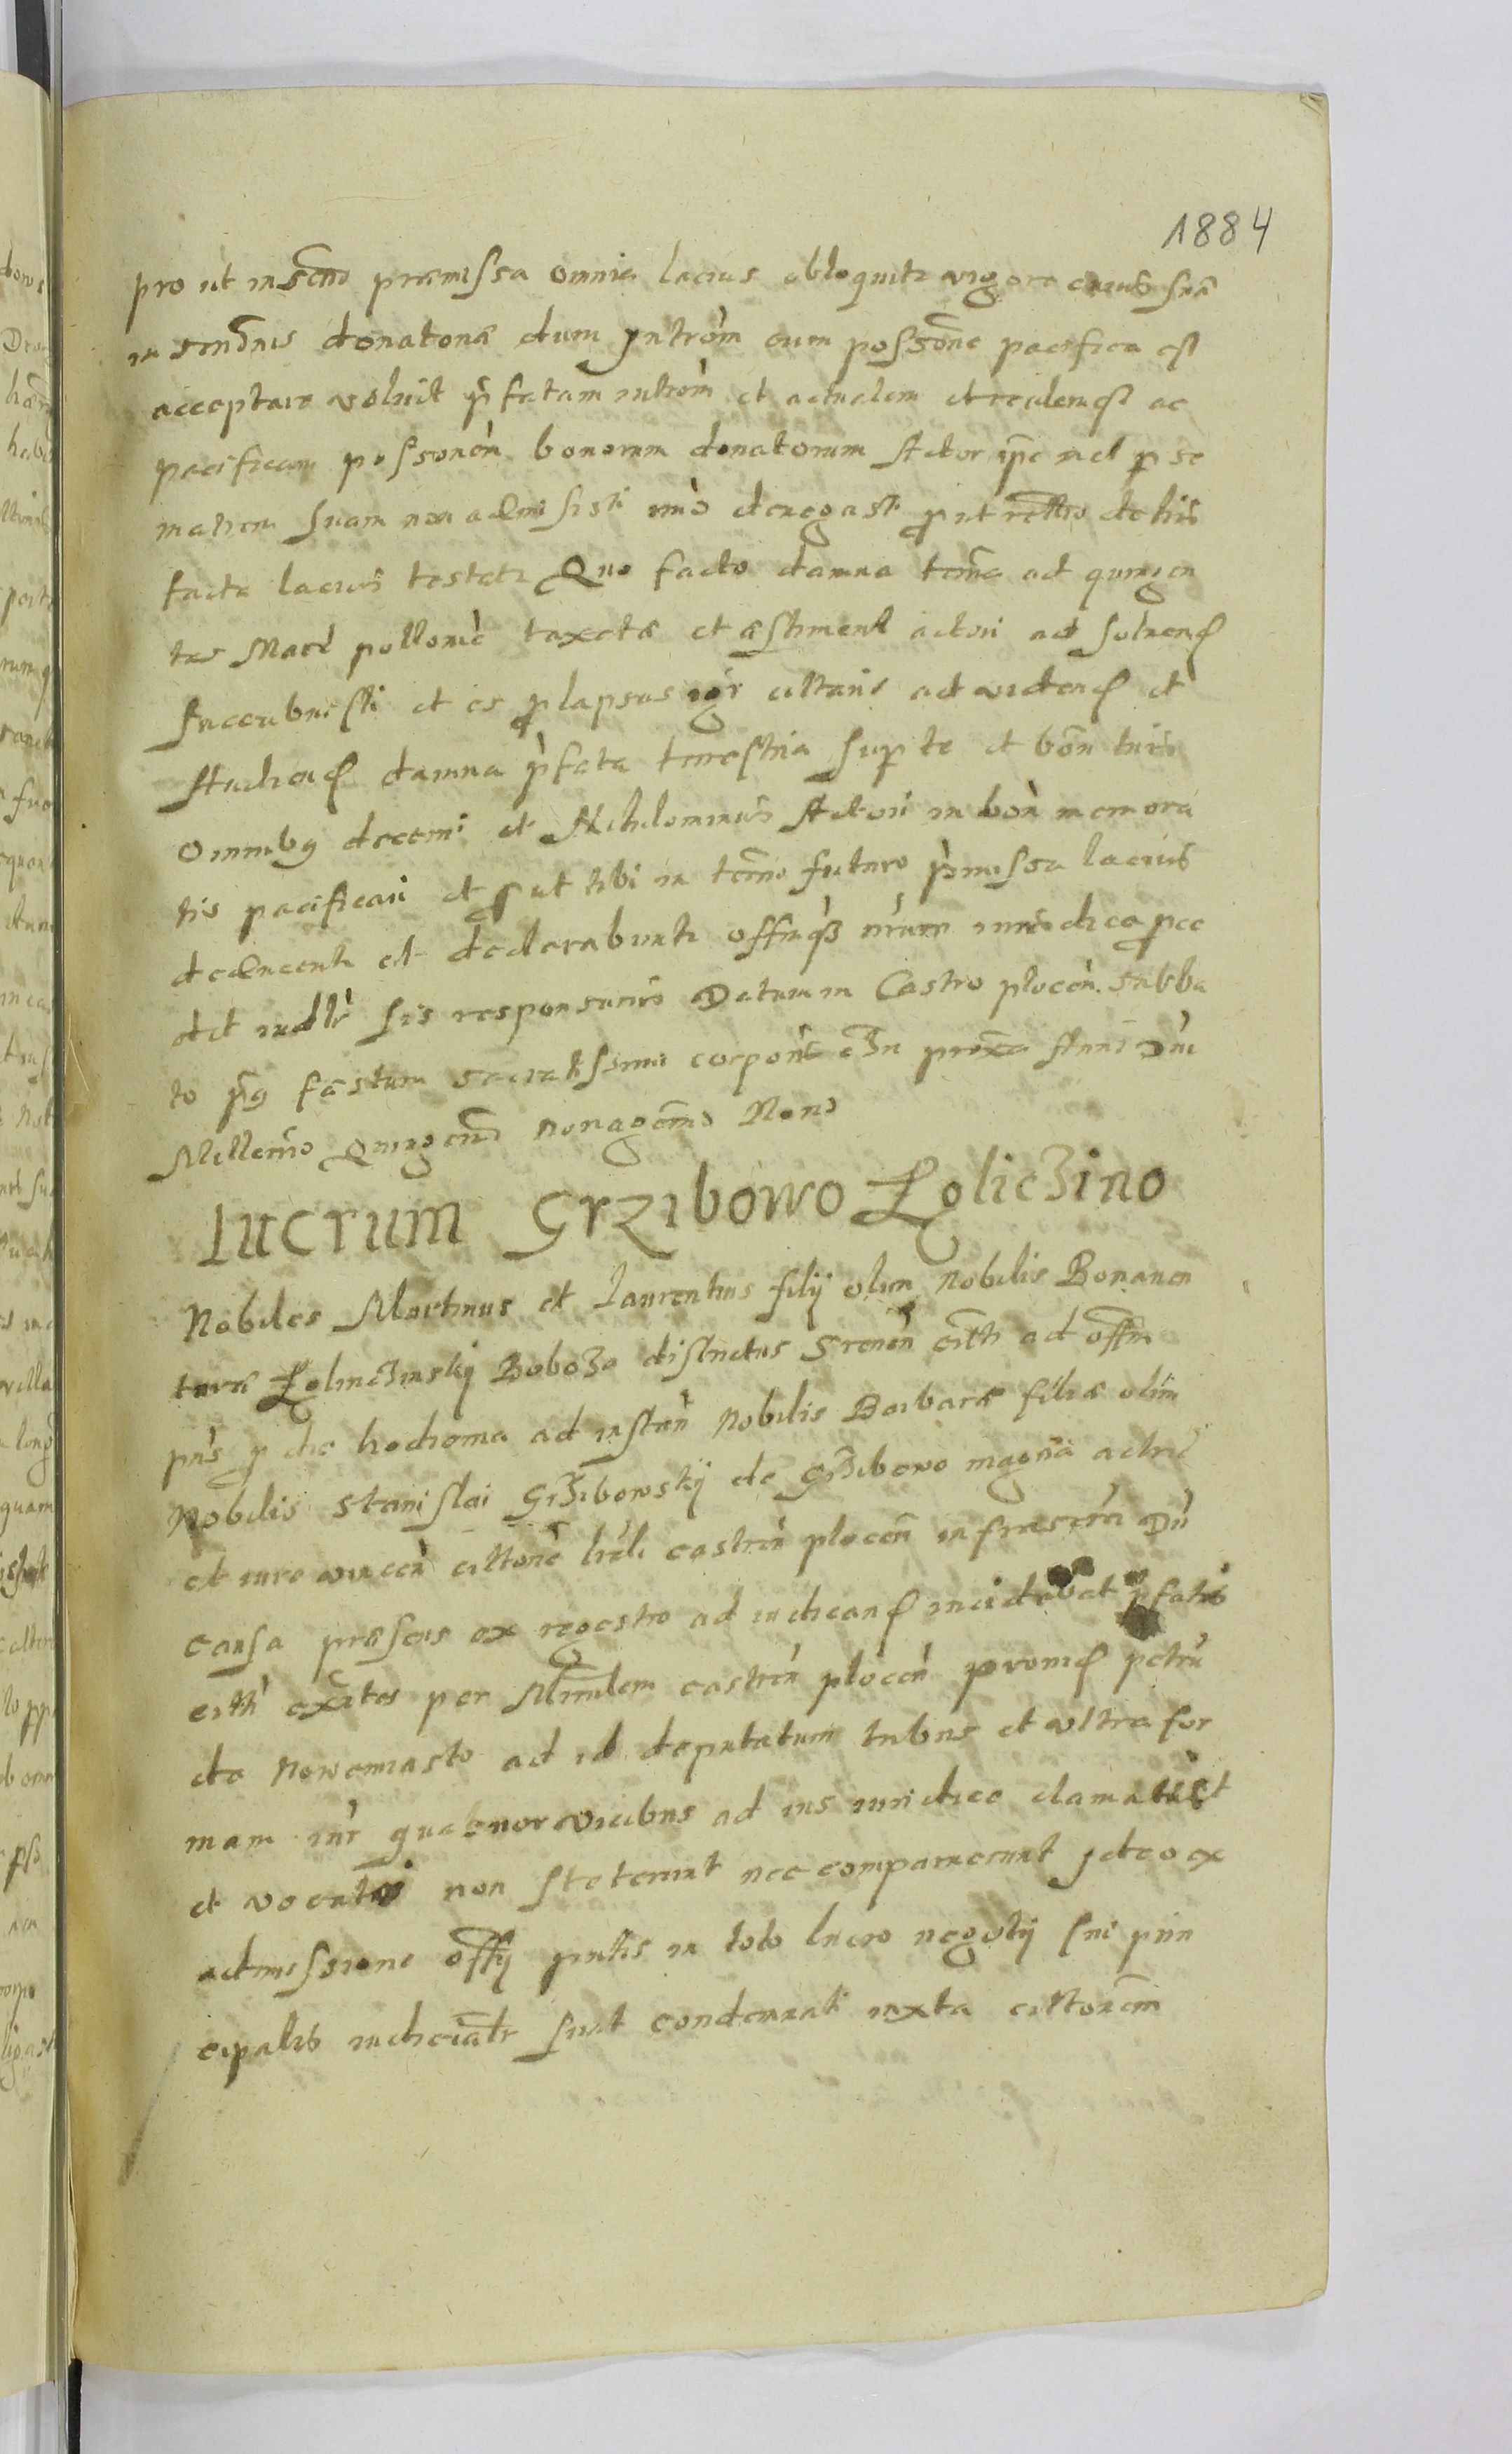 1884
pro ut in scrto præmissa omnia lacius obloquitr vigore cuius suã
in
donatonẽ dum Intrõm cum possõne pacifica
acceptare voluit p̃fatam intrõm et actualem et realem ac
pacificam possonẽm bonorum donatorum Actor ip̃e nec p se
matrem suam non admisisti imò denegasti prut de his
facta lacius testatr Quo facto damna ad quingen
tas Marc pollonic taxata et æstiment actori ad solvend
succubuisti et es plapsus igr cittaris ad vidend et
Audiend damna p̃fata terrestria sup te et bõn tuis
omnibq decerni et Nihilominus Actori in bon memora
tis pacificari et put tibi in termo futuro p̃missa lacius
deducentr et declarabuntr offmq3 nrum iuridice pce
det sis responsurus Datum in Castro plocen Sabba
to pq festum sacratissimi corporis proxa Anni Dni
Millemo Quingen nonagemo Nono
Lucrum Grzibowo Łolic3ino
Nobiles Martinus et Laurentius filij olim Nobilis Bonaven
turæ Łolinc3insky Bobo3e districtus Srenen citti ad offm
pns p die hodierna ad instan Nobilis Barbaræ filiæ olim
Nobilis Stanislai Gr3ibowskij de Gr3ibowo magna actric
et iure vincen cittone castren plocen infrascrta Du
causa præsens ex regestro ad iudicand incideret p̃fatis
citti per Mirlem castren plocen provid petru
de Nowemiasto ad id deputatum tribus et ultra for
mam iur quatuor vicibus ad ius iuridice clamati
et vocati non steterunt nec comparuerunt Ideo ex
admissione offij pntis in toto lucro negotij sui prin
cipalis iudicialr sunt condemnati iuxta cittonem